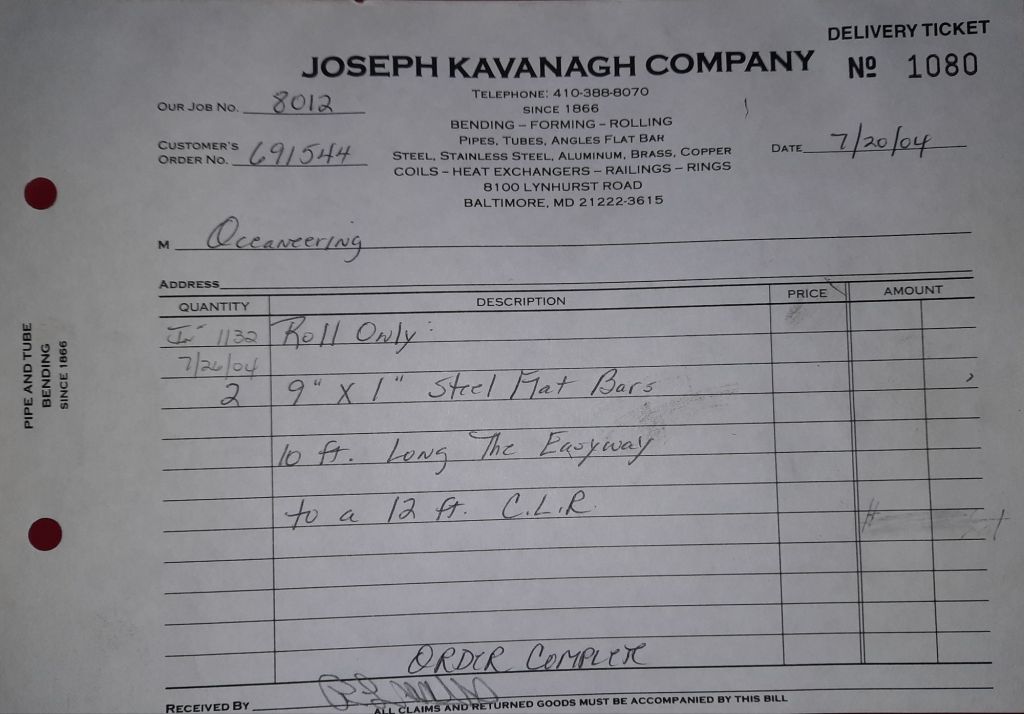 DELIVERY TICKET
JOSEPH KAVANAGH COMPANY
Nº 1080
TELEPHONE: 410-388-8070
SINCE 1866
BENDING – FORMING – ROLLING
PIPES, TUBES, ANGLES FLAT BAR
STEEL, STAINLESS STEEL, ALUMINUM, BRASS, COPPER
COILS – HEAT EXCHANGERS – RAILINGS – RINGS
8100 LYNHURST ROAD
BALTIMORE, MD 21222-3615
OUR JOB NO. 8012
CUSTOMER'S
ORDER NO. 691544
DATE 7/20/04
M Oceaneering
ADDRESS
QUANTITY DESCRIPTION PRICE AMOUNT
1132 Roll Only:
7/26/04
2 9" X 1" Steel Flat Bars
10 ft. Long The Easyway
to a 12 ft. C.L.R.
ORDER COMPLETE
RECEIVED BY
ALL CLAIMS AND RETURNED GOODS MUST BE ACCOMPANIED BY THIS BILL
PIPE AND TUBE
BENDING
SINCE 1866